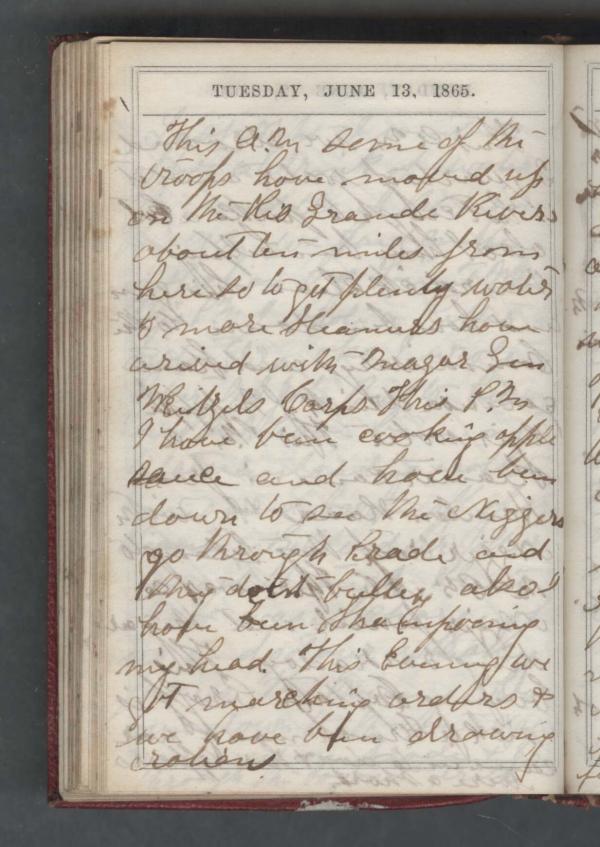 TUESDAY, JUNE 13, 1865.
This A.M some of the
troops have moved up
on the Rio Grande River
about ten miles from
here so to get plenty water
& more steamers have
arived with Magor Gen
Weitzels Corps This P.M
I have been cooking apple
sauce and have been
down to see the Niggers
go through Prade and
they do it bully also I
have been Shampooing
my head. This Evening we
got marching orders &
we have been drawing
rations